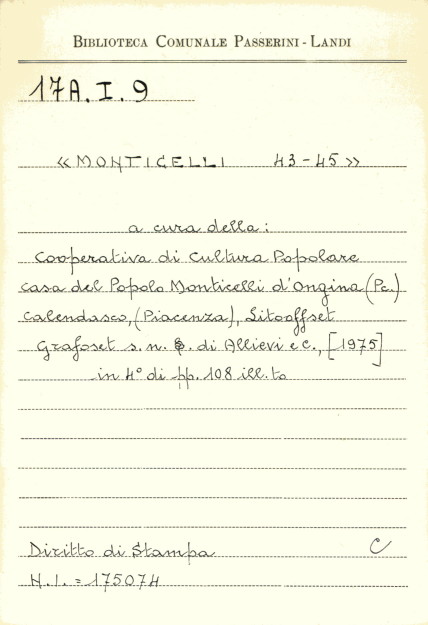 BIBLIOTECA COMUNALE PASSERINI - LANDI
17A. I. 9
« MONTICELLI 43-45 »
a cura della:
Cooperativa di Cultura Popolare
casa del Popolo Monticelli d'Ongina (Pc.)
Calendasco, (Piacenza), Litooffset
Grafoset s. n. di Allievi e C., [1975]
in 4° di pp. 108 ill.to
Diritto di Stampa C
N.I. = 175074